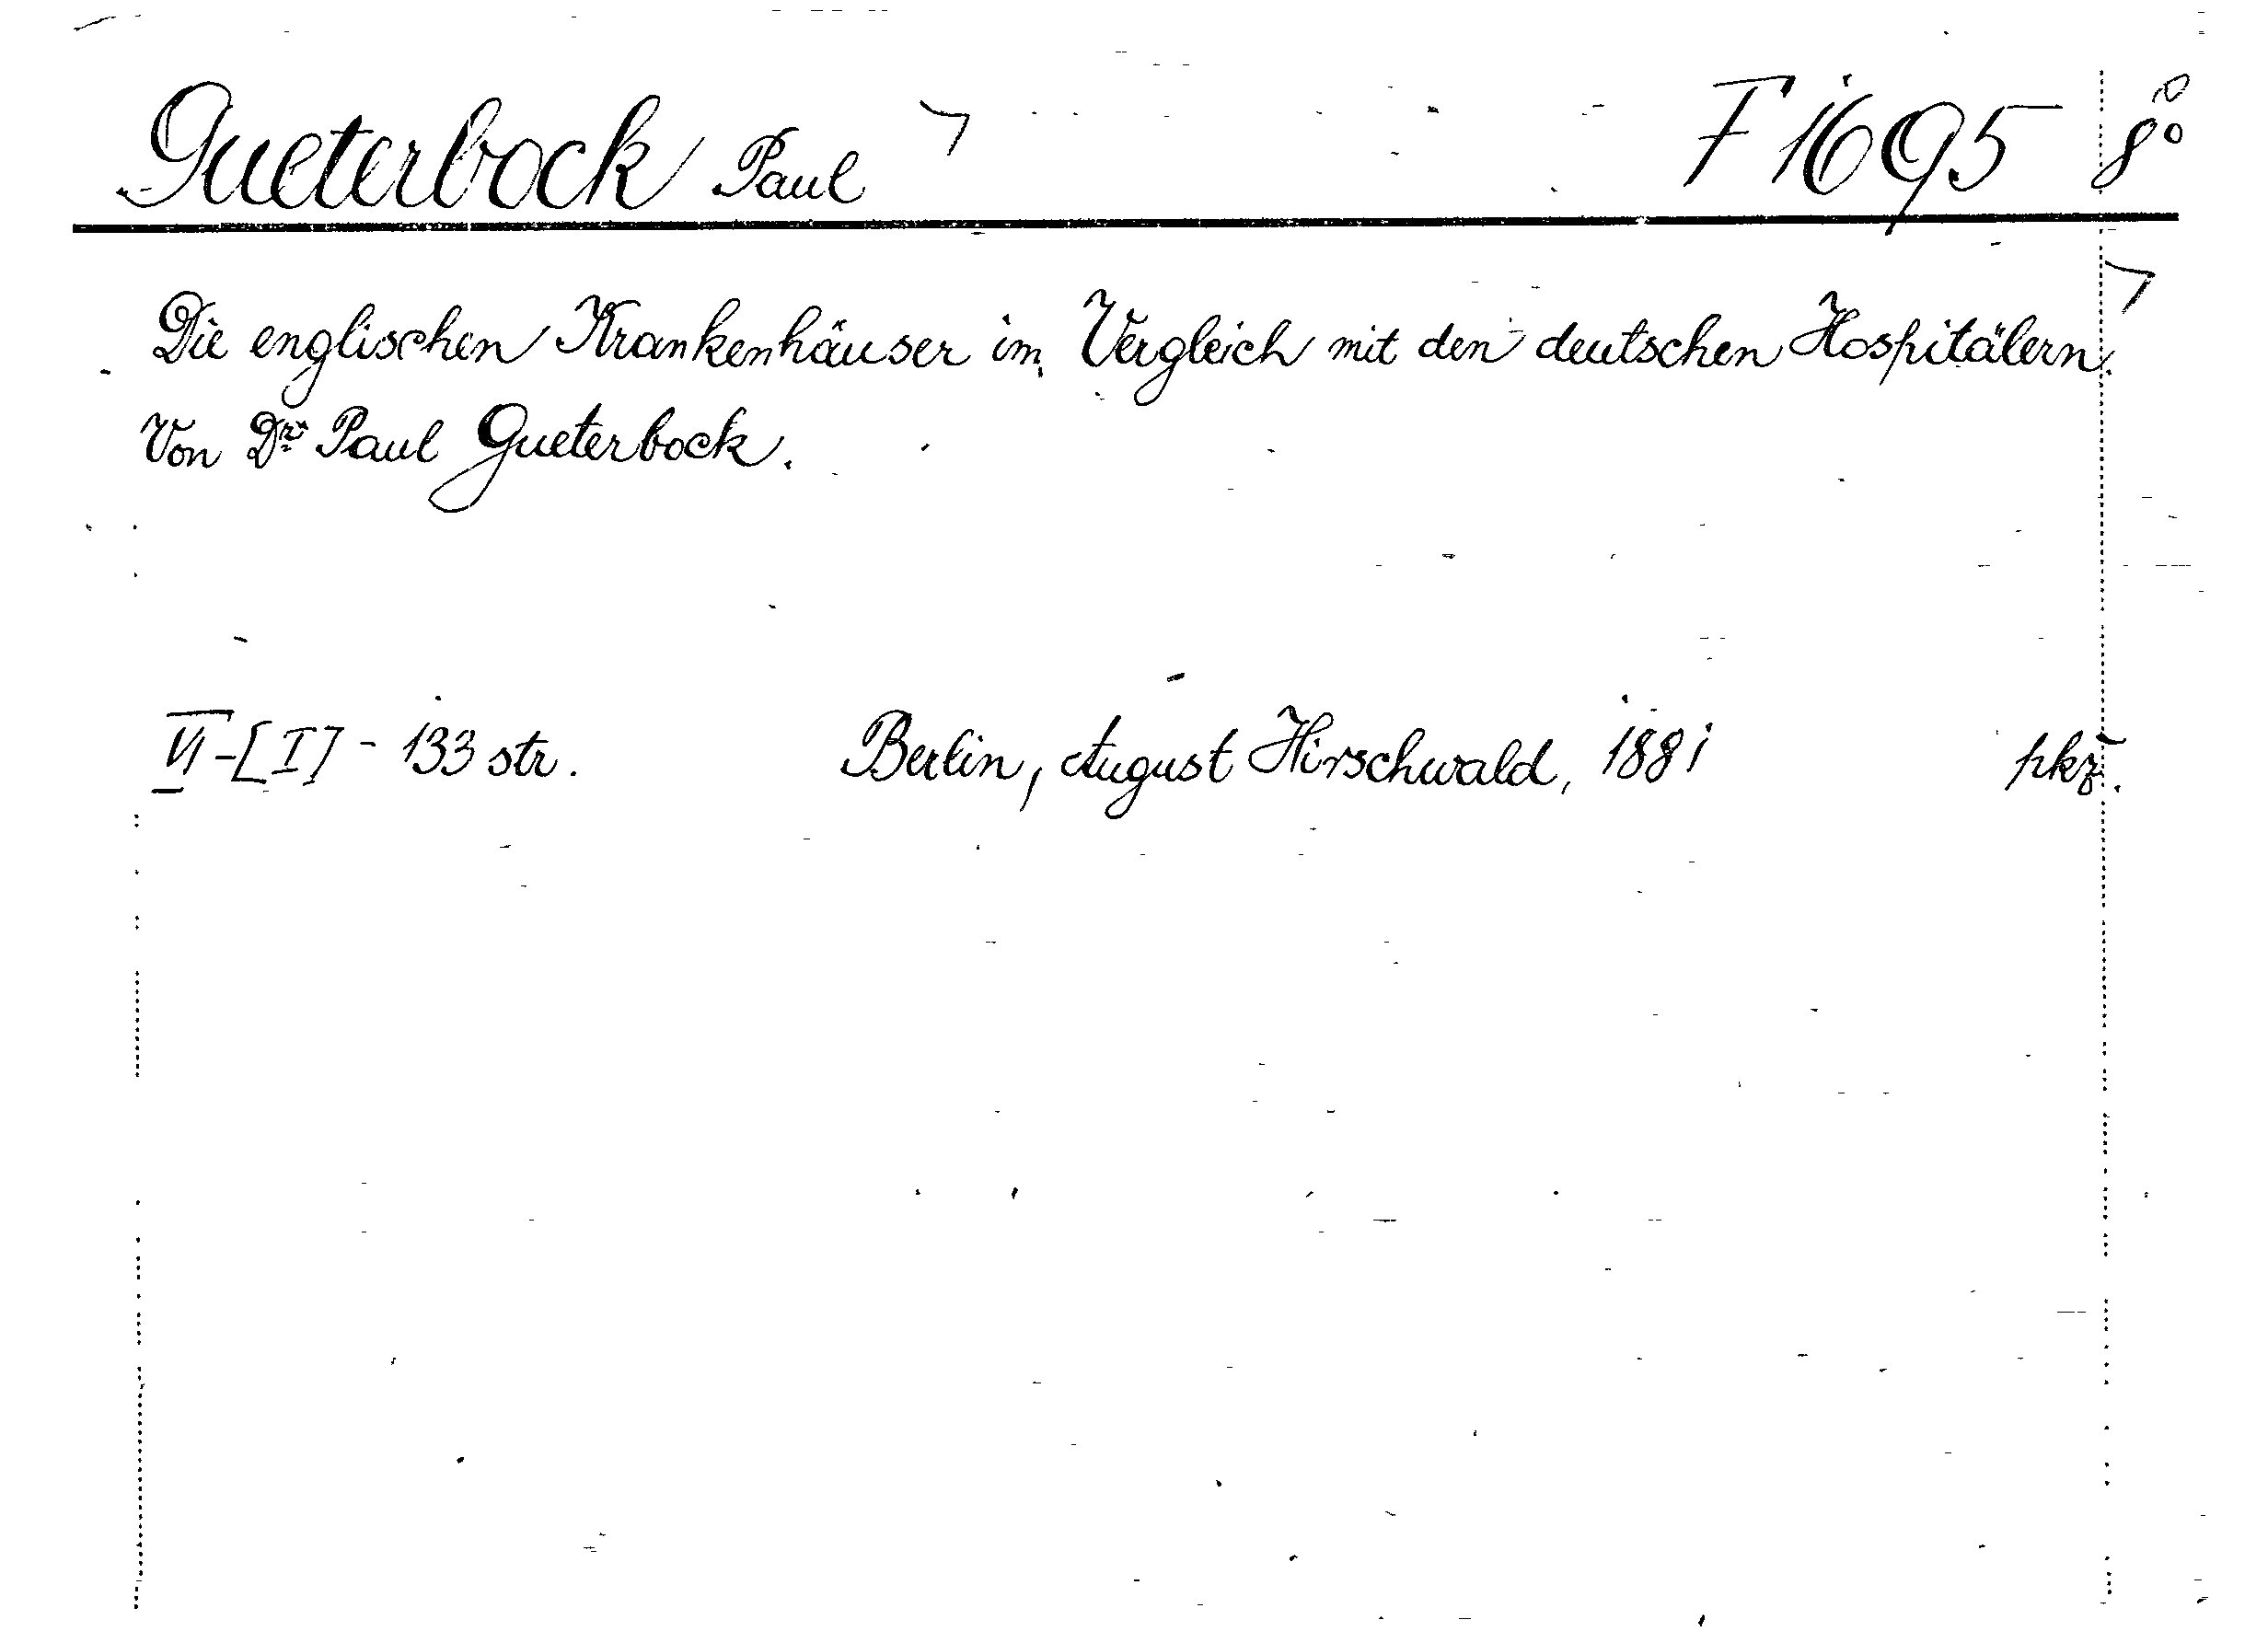 Gueterbock Paul F 1695 8°
Die englischen Krankenhäuser im Vergleich mit den deutschen Hospitälern.
Von Dr. Paul Gueterbock.
VI-[I] - 133 str. Berlin, August Hirschwald, 1881 pkz.